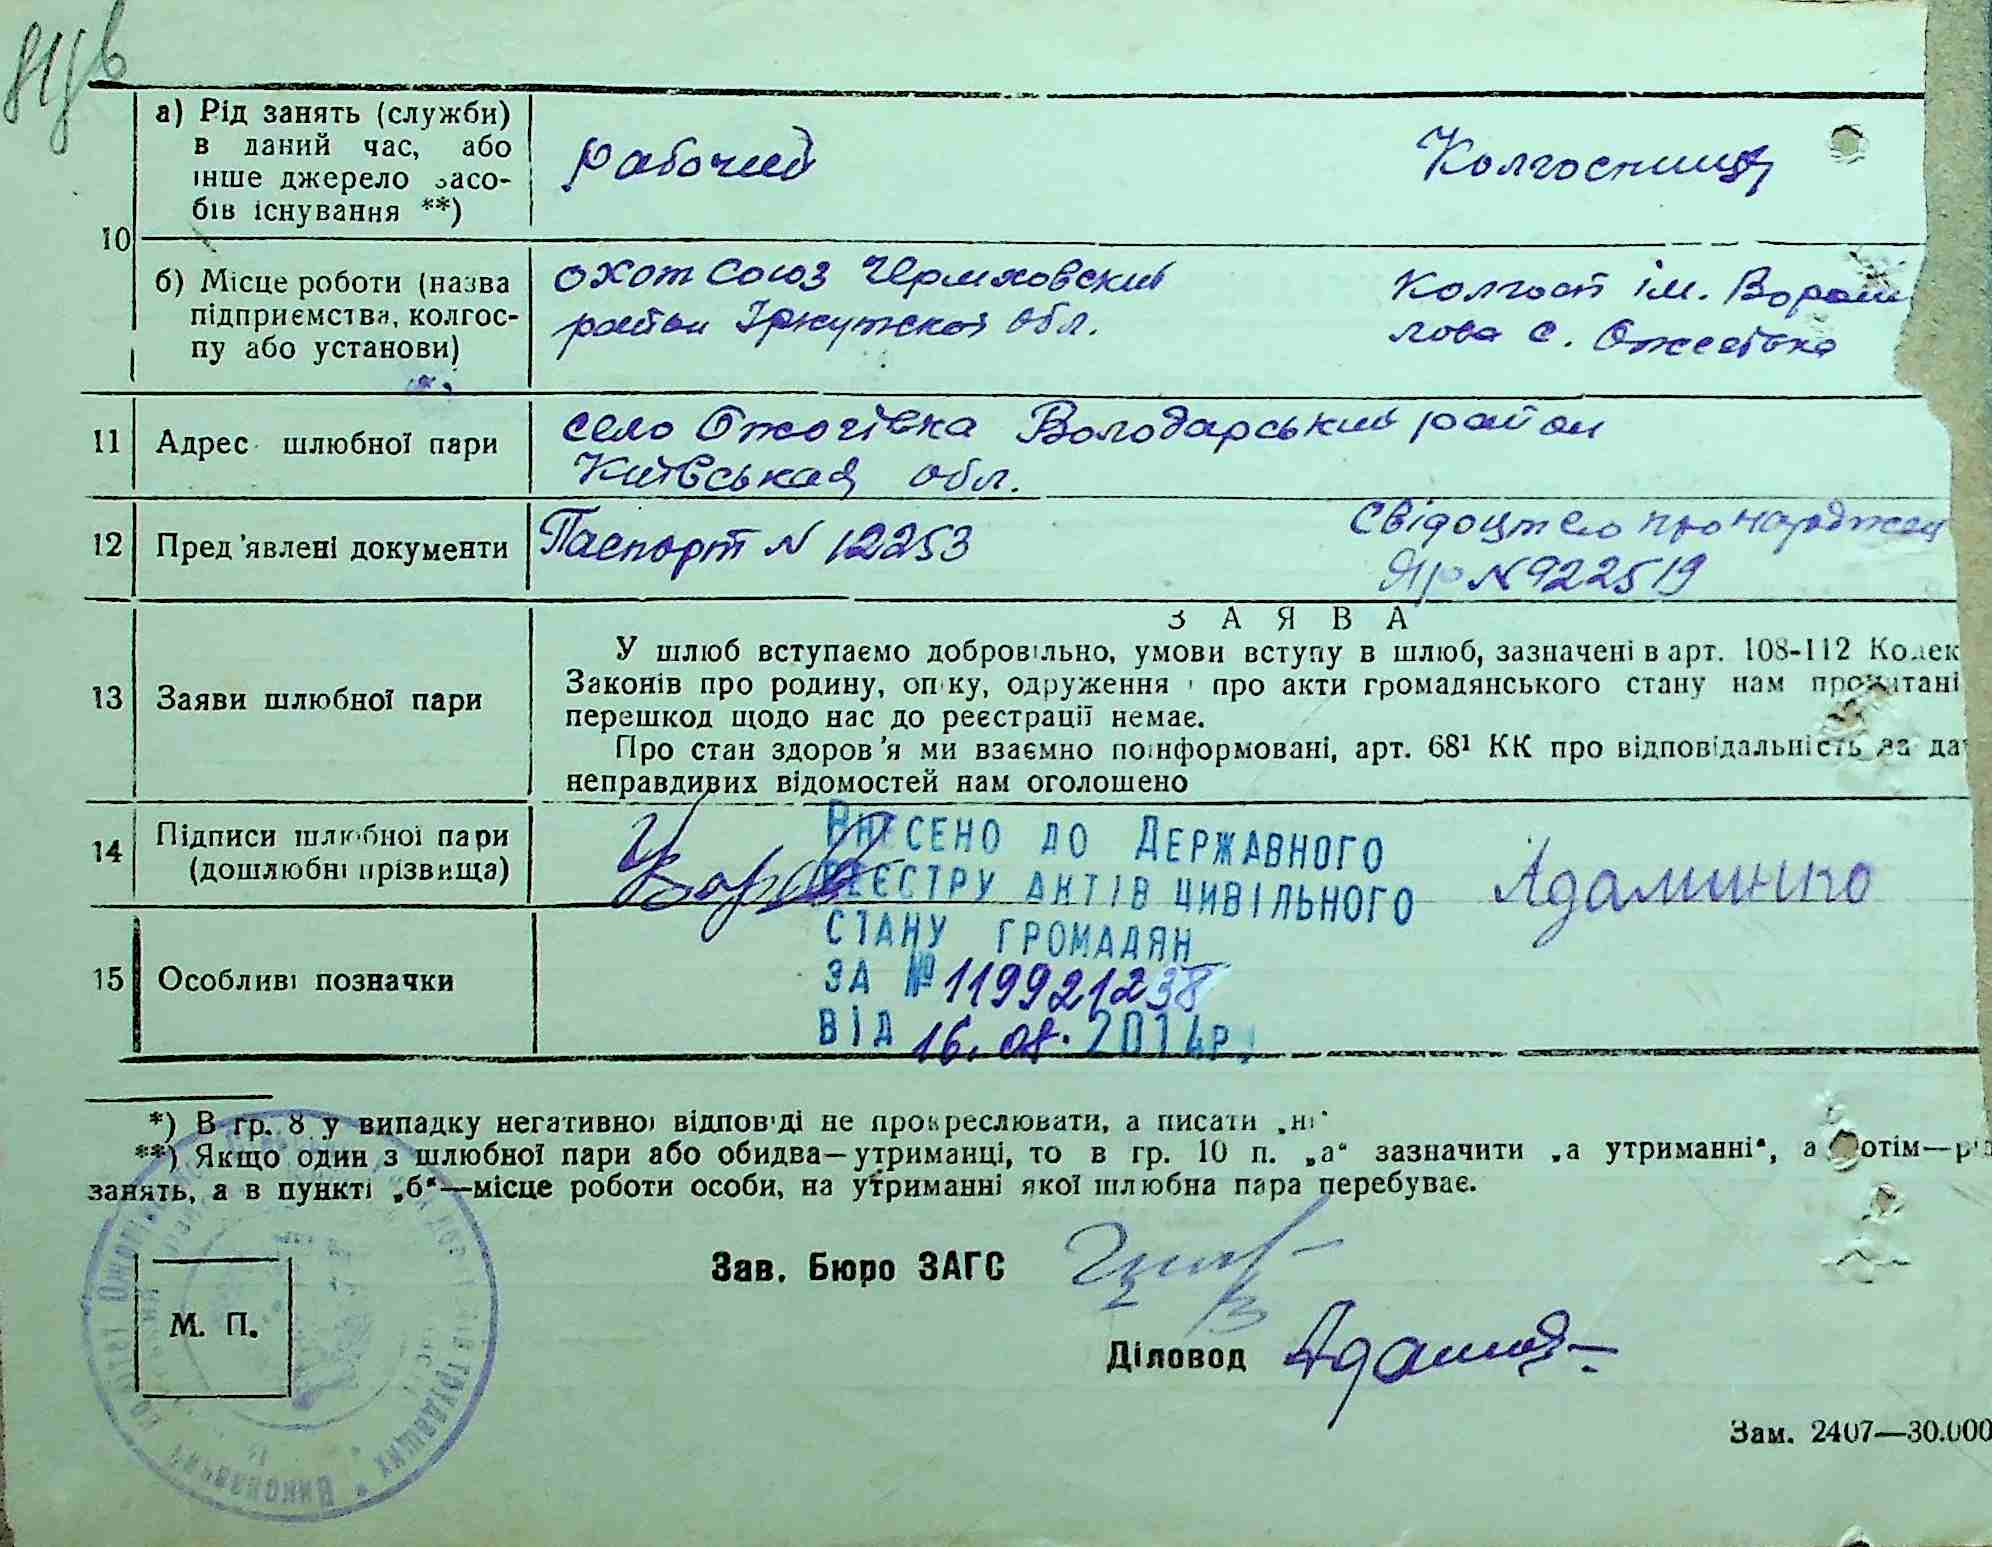 10
а) Рід занять (служби)
в даний час, або
інше джерело засо-
бів існування **)
рабочий
Колгоспниця
б) Місце роботи (назва
підприємства, колгос-
пу або установи)
охотсоюз Черемховский
район Іркутской обл.
Колгосп ім. Вороши
лова с. Ожегівка
11
Адрес шлюбної пари
село Ожогівка Володарський район
Київськая обл.
12
Пред'явлені документи
Паспорт N 12253
Свідоцтво про народжен
ЯР N 922519
13
Заяви шлюбної пари
ЗАЯВА
У шлюб вступаємо добровільно, умови вступу в шлюб, зазначені в арт. 108-112 Кодек
Законів про родину, опіку, одруження і про акти громадянського стану нам прочитані
перешкод щодо нас до реєстрації немає.
Про стан здоров'я ми взаємно поінформовані, арт. 68¹ КК про відповідальність за да
неправдивих відомостей нам оголошено
14
Підписи шлюбної пари
(дошлюбні прізвища)
Адаминко
Внесено до Державного
реєстру актів цивільного
стану громадян
за № 119921238
від 16.08.2014р.
15
Особливі позначки
*) В гр. 8 у випадку негативної відповіді не прокреслювати, а писати „ні"
**) Якщо один з шлюбної пари або обидва—утриманці, то в гр. 10 п. „а" зазначити „а утриманні", а потім—рід
занять, а в пункті „б"—місце роботи особи, на утриманні якої шлюбна пара перебуває.
М. П.
Зав. Бюро ЗАГС
Діловод
Зам. 2407—30.000